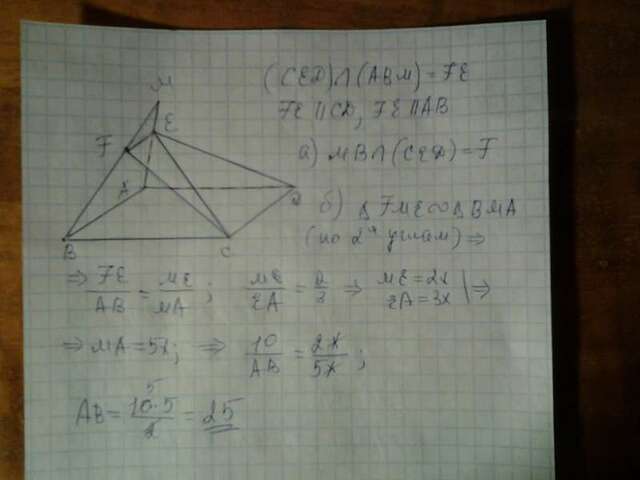 M
(CED)∩(ABM)=FE
E
FE∥CD, FE∥AB
F
а) MB∩(CED)=F
A
D
б) Δ FME∞Δ BMA
B
C
(по 2м углам) ⇒
⇒ FE/AB = ME/MA ; ME/EA = 2/3 ⇒ ME=2x EA=3x | ⇒
⇒ MA=5x; ⇒ 10/AB = 2x/5x ;
AB= 10·5/2 = 25
5